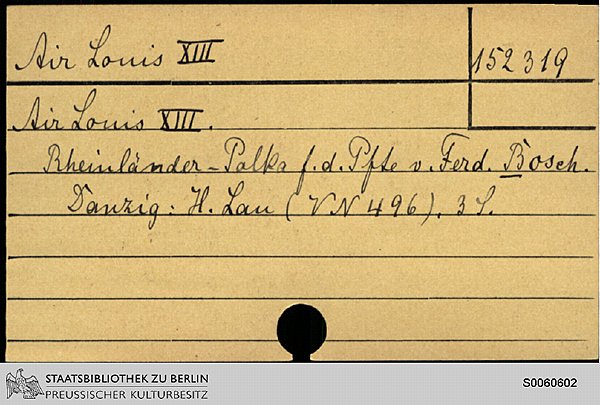 Air Louis XIII
152319
Air Louis XIII.
Rheinländer-Polka f. d. Pfte v. Ferd. Bosch.
Danzig: H. Lau (VN 496). 3 S.
STAATSBIBLIOTHEK ZU BERLIN
PREUSSISCHER KULTURBESITZ
S0060602